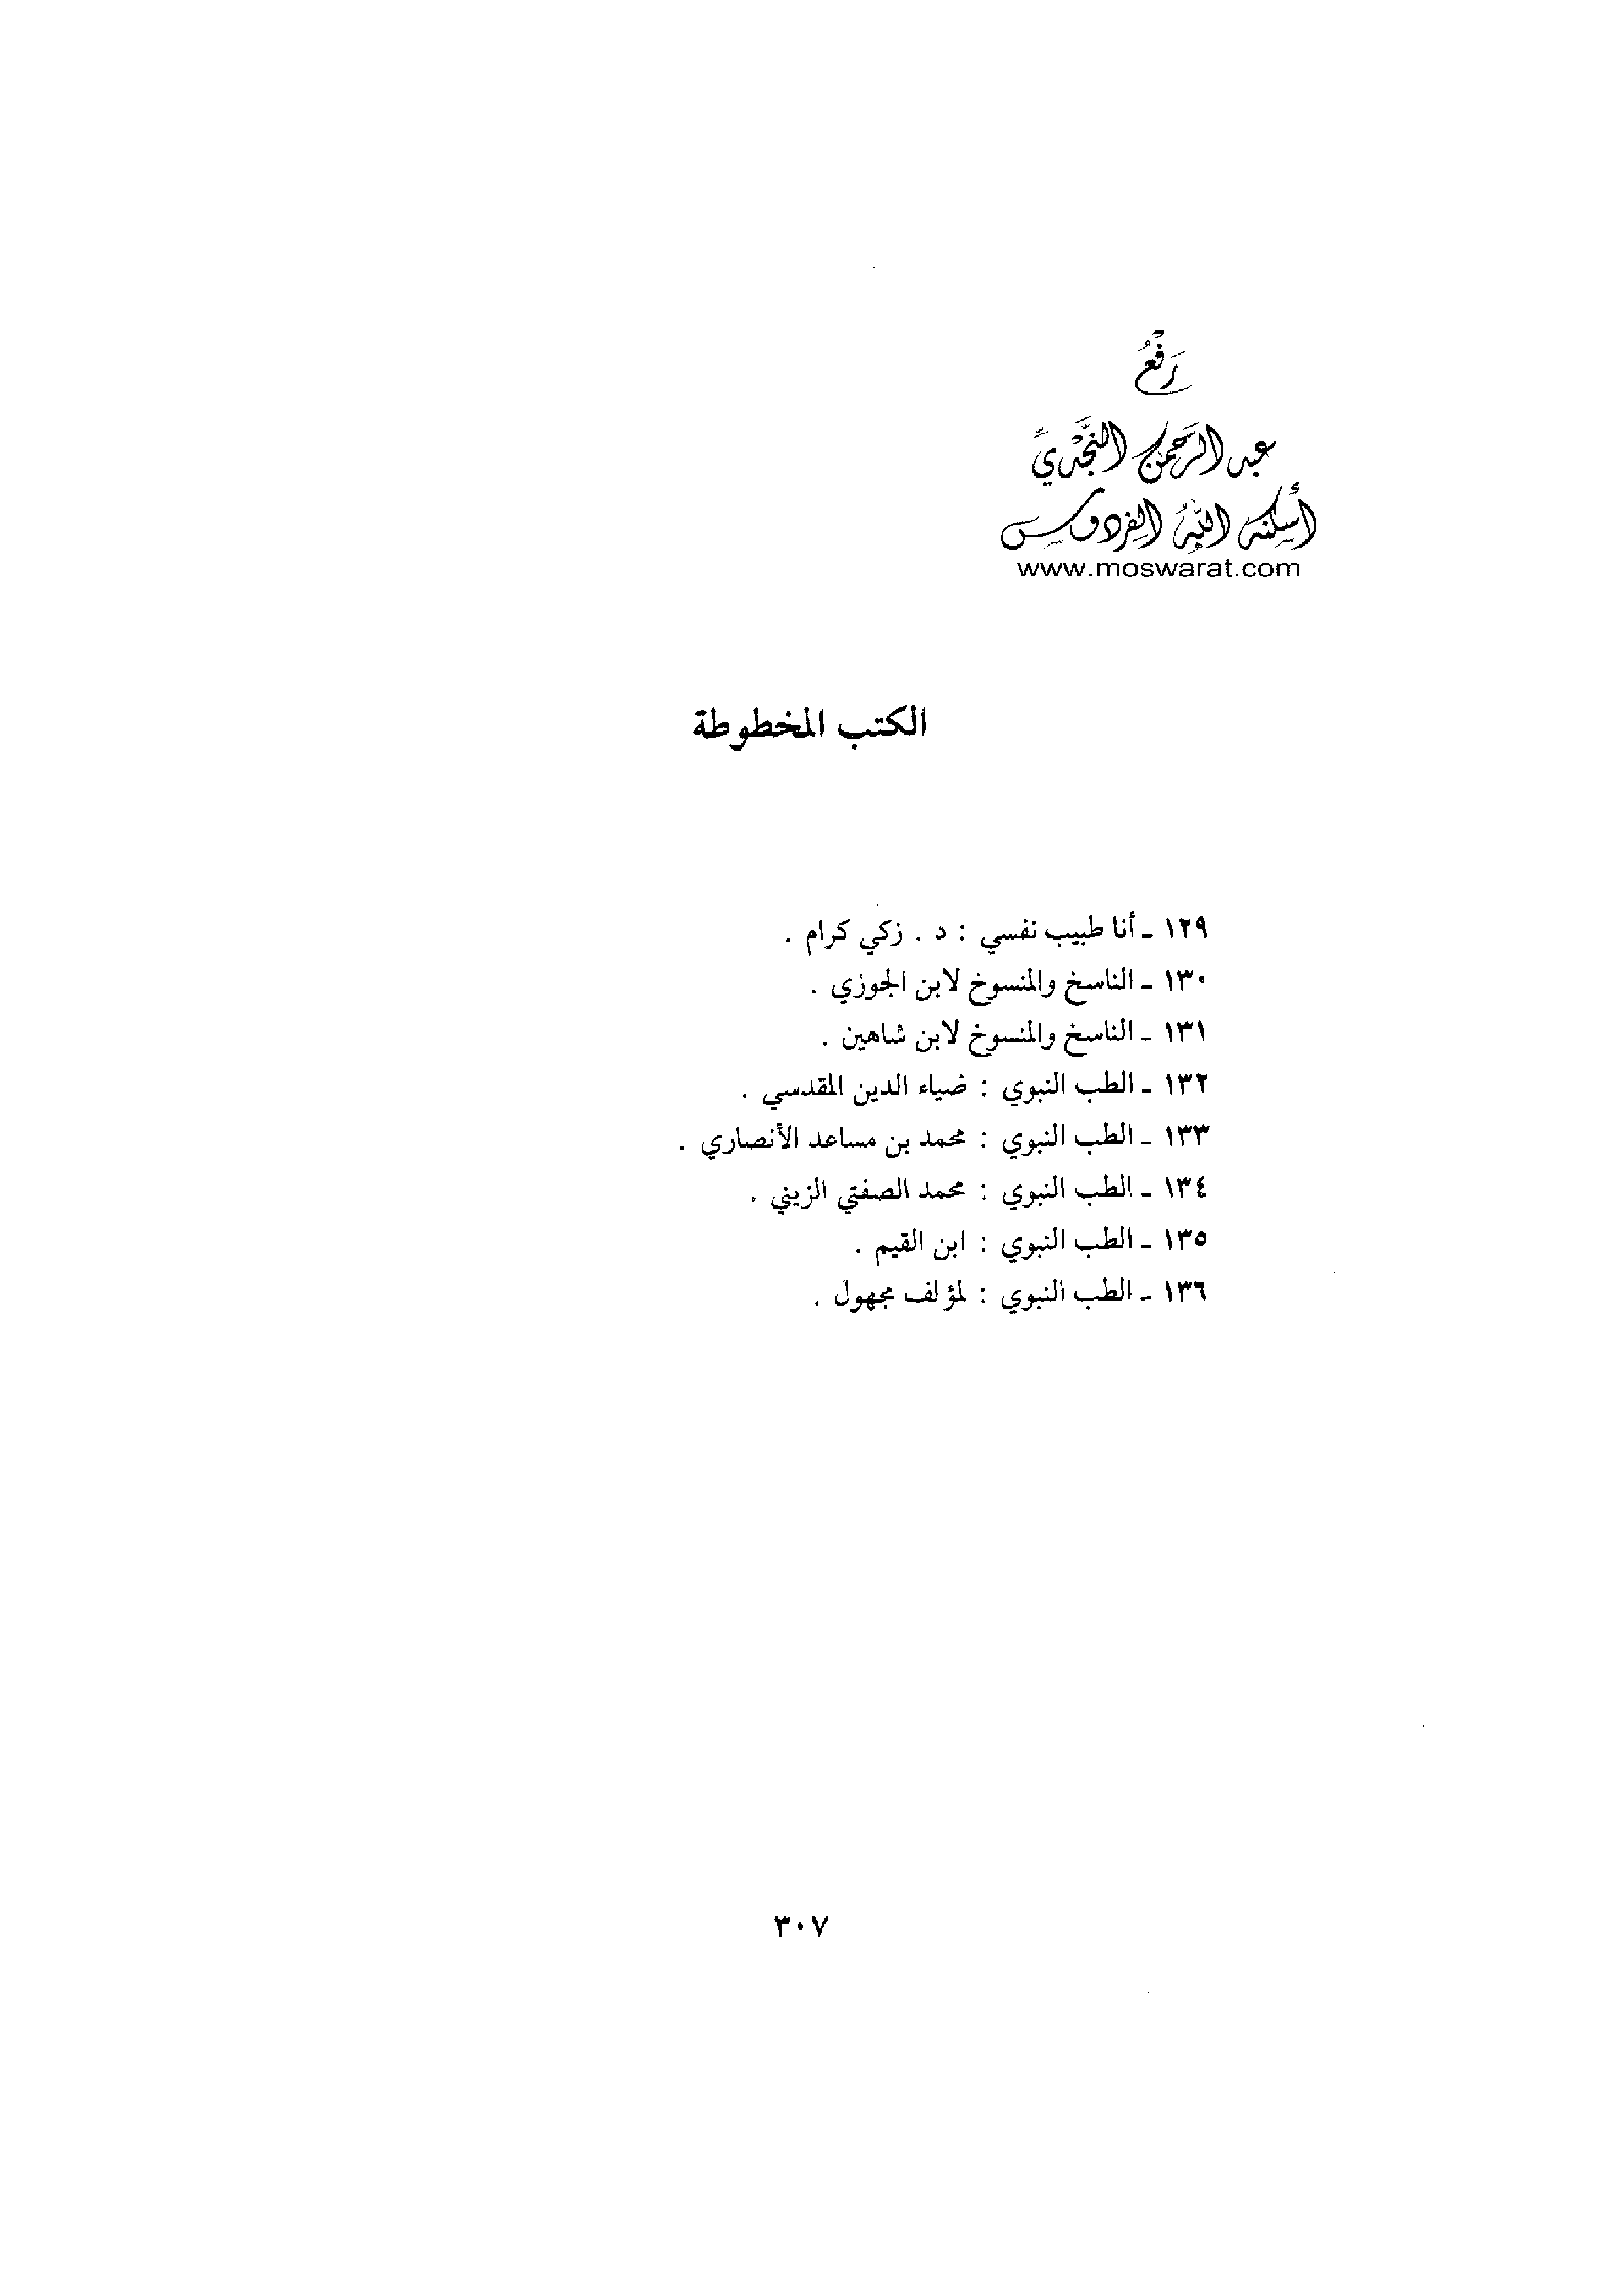 رَفْعُ
عبد الرَّحمن النَّجْدِيِّ
أَسكنه اللهُ الفردوس
www.moswarat.com
الكتب المخطوطة
١٢٩ ـ أنا طبيب نفسي : د . زكي كرام .
١٣٠ ـ الناسخ والمنسوخ لابن الجوزي .
١٣١ ـ الناسخ والمنسوخ لابن شاهين .
١٣٢ ـ الطب النبوي : ضياء الدين المقدسي .
١٣٣ ـ الطب النبوي : محمد بن مساعد الأنصاري .
١٣٤ ـ الطب النبوي : محمد الصفتي الزيني .
١٣٥ ـ الطب النبوي : ابن القيم .
١٣٦ ـ الطب النبوي : لمؤلف مجهول .
٣٠٧